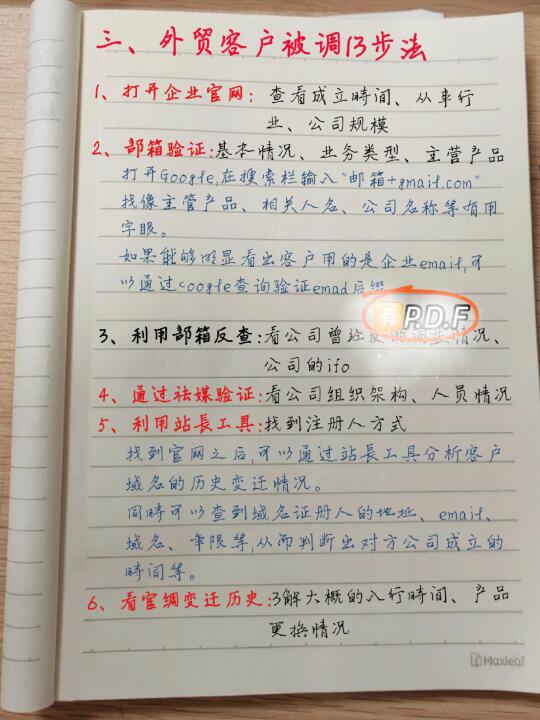 三、外贸客户被调13步法
1、打开企业官网：查看成立時间、从事行
业、公司规模
2、部箱验证:基本情况、业务类型、主营产品
打开Google,在搜索栏输入"邮箱+gmaif.com"
找像主营产品、相关人名、公司名称等有用
字眼。
如果能够明显看出客户用的是企业emaif,可
以通过coogle查询验证emad后缀
有P.D.F
3、利用部箱反查:看公司曾经发 情况、
公司的ifo
4、通过社媒验证:看公司组织架构、人员情况
5、利用站長工具:找到注册人方式
找到官网之后,可以通过站長工具分析客户
域名的历史变迁情况。
同時可以查到域名证册人的地址、emaif、
域名、年限等,从而判断出对方公司成立的
時间等。
6、看官绸变迁历史:了解大概的入行時间、产品
更换情况
Maxleaf